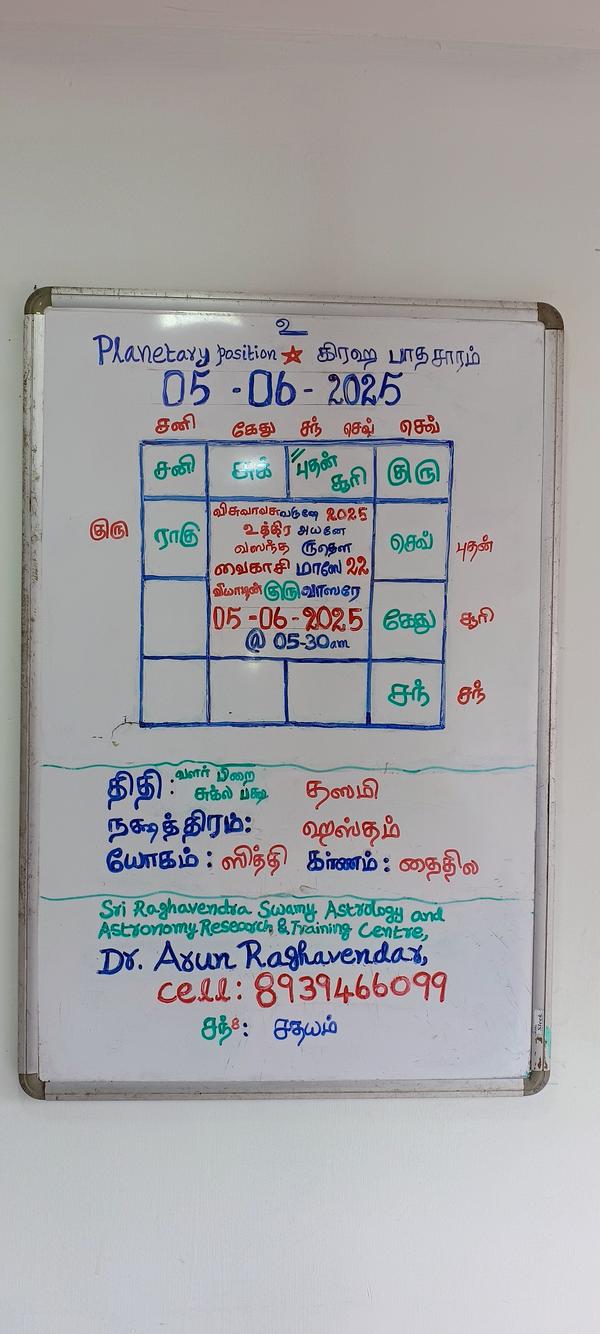 உ
Planetary position ★ கிரஹ பாதசாரம்
05 - 06 - 2025
சனி கேது சந் செவ் செவ்
சனி சுக் "புதன் சூரி குரு
குரு ராகு செவ் புதன்
விசுவாவசுவருஷே 2025
உத்திர அயனே
வஸந்த ருதௌ
வைகாசி மாஸே 22
வியாழன் குரு வாஸரே
05 - 06 - 2025
@ 05-30am
கேது சூரி
சந் சந்
திதி : வளர் பிறை சுக்ல பக்ஷ தஸமி
நக்ஷத்திரம்: ஹஸ்தம்
யோகம் : ஸித்தி கர்ணம் : தைதில
Sri Raghavendra Swamy Astrology and
Astronomy Research & Training Centre,
Dr. Arun Raghavendar,
cell: 8939466099
சந்8: சதயம்